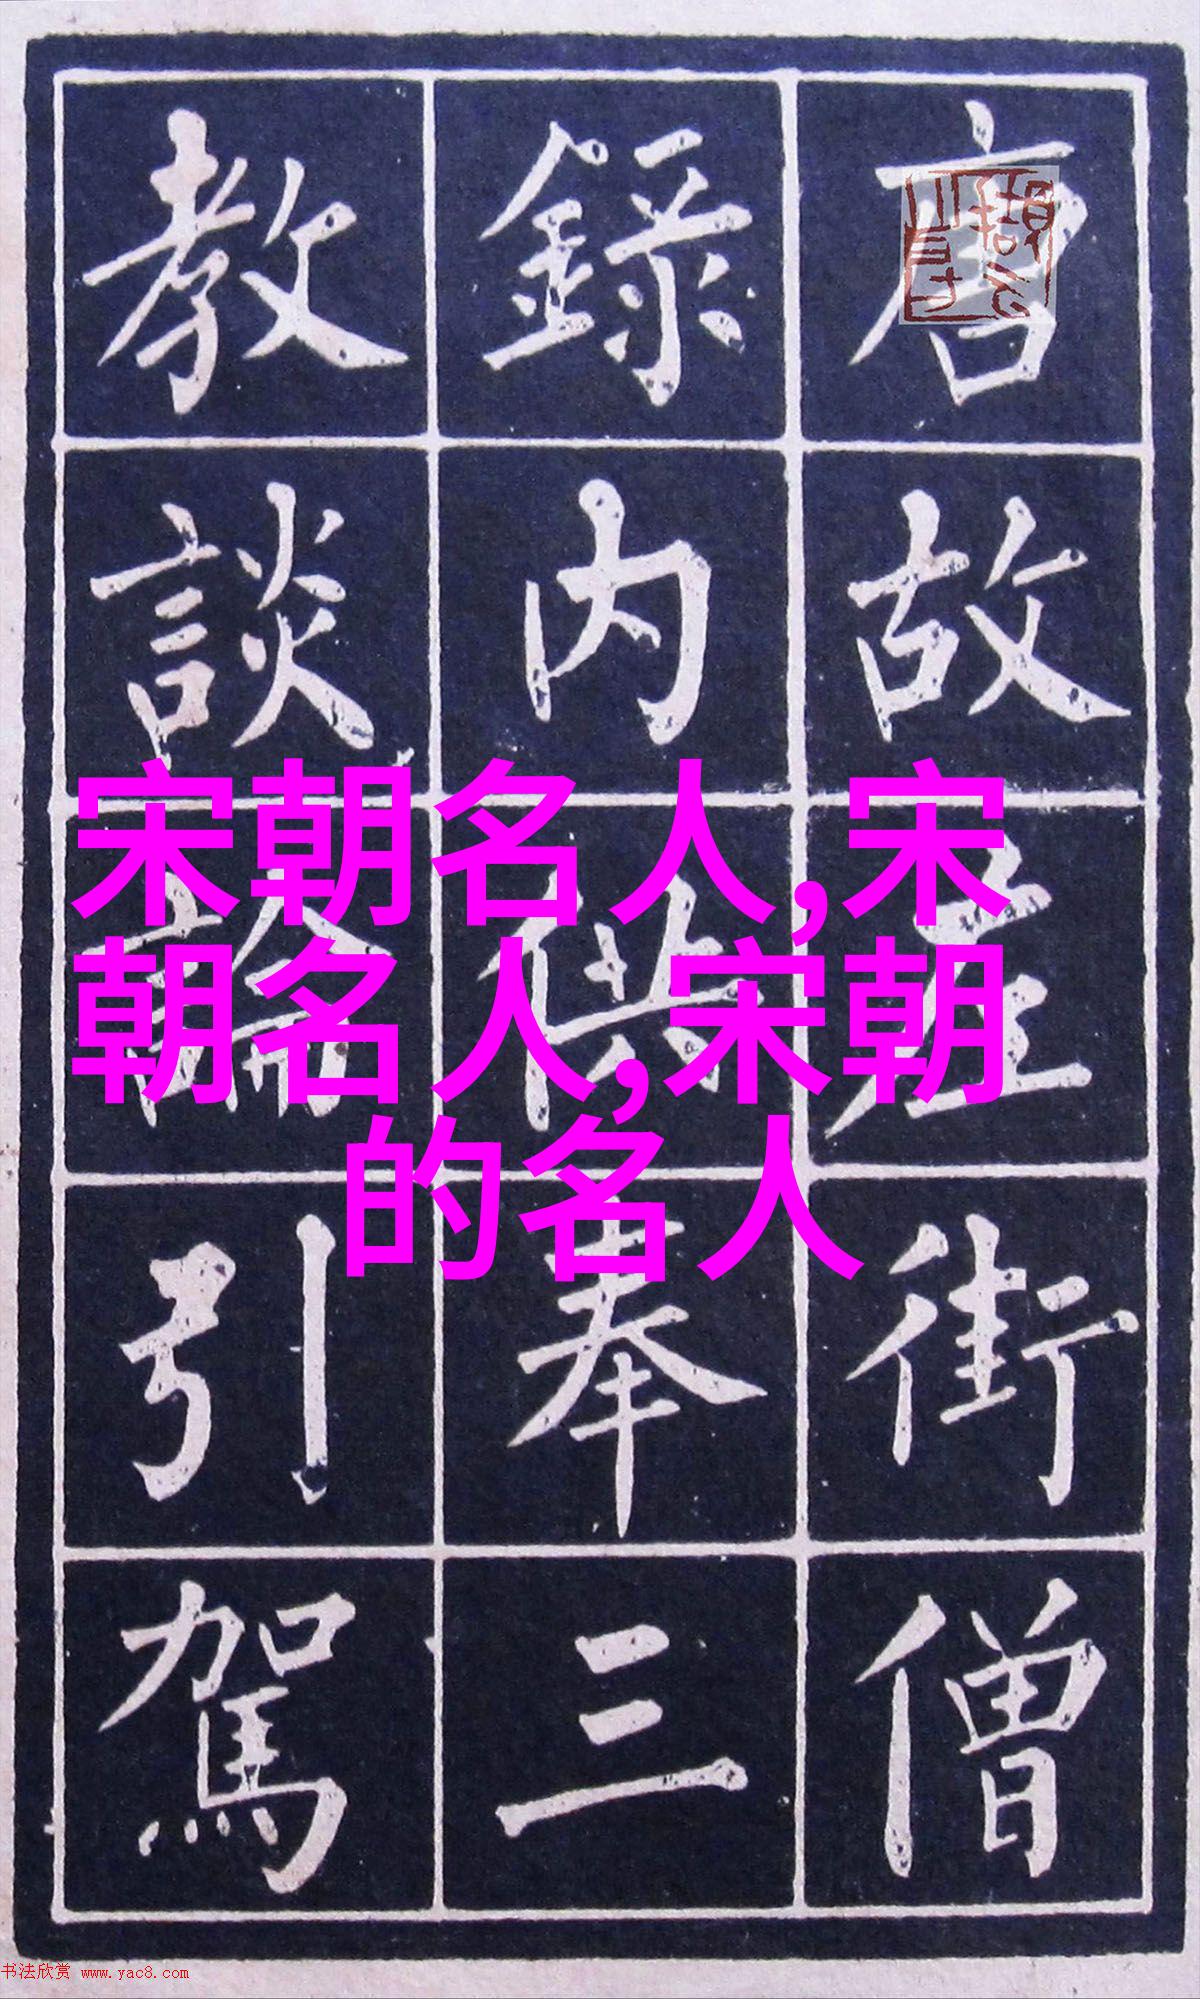 唐故左街僧
錄內供奉三
教談論引駕
宋朝名人,宋
朝名人,宋朝
的名人
书法欣赏 www.yac8.com